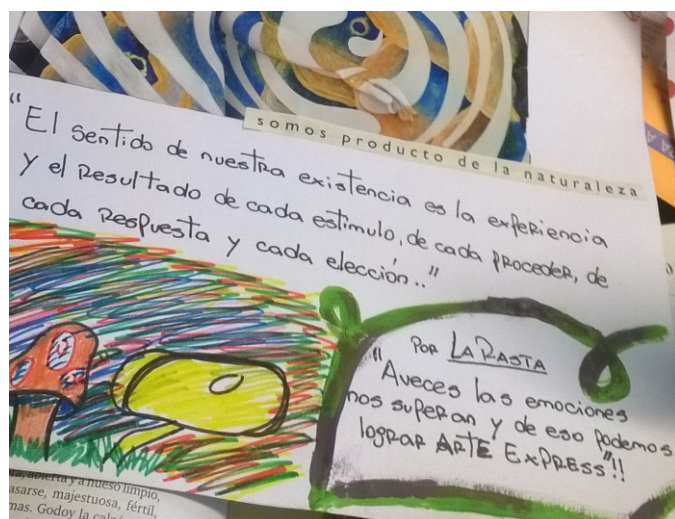 somos producto de la naturaleza
"El sentido de nuestra existencia es la experiencia
y el resultado de cada estimulo, de cada proceder, de
cada respuesta y cada elección.."
Por LA RASTA
"Aveces las emociones
nos superan y de eso podemos
lograr ARTE EXPRESS"!!
abierta y a hueso limpio,
asarse, majestuosa, fértil,
mas. Godoy la